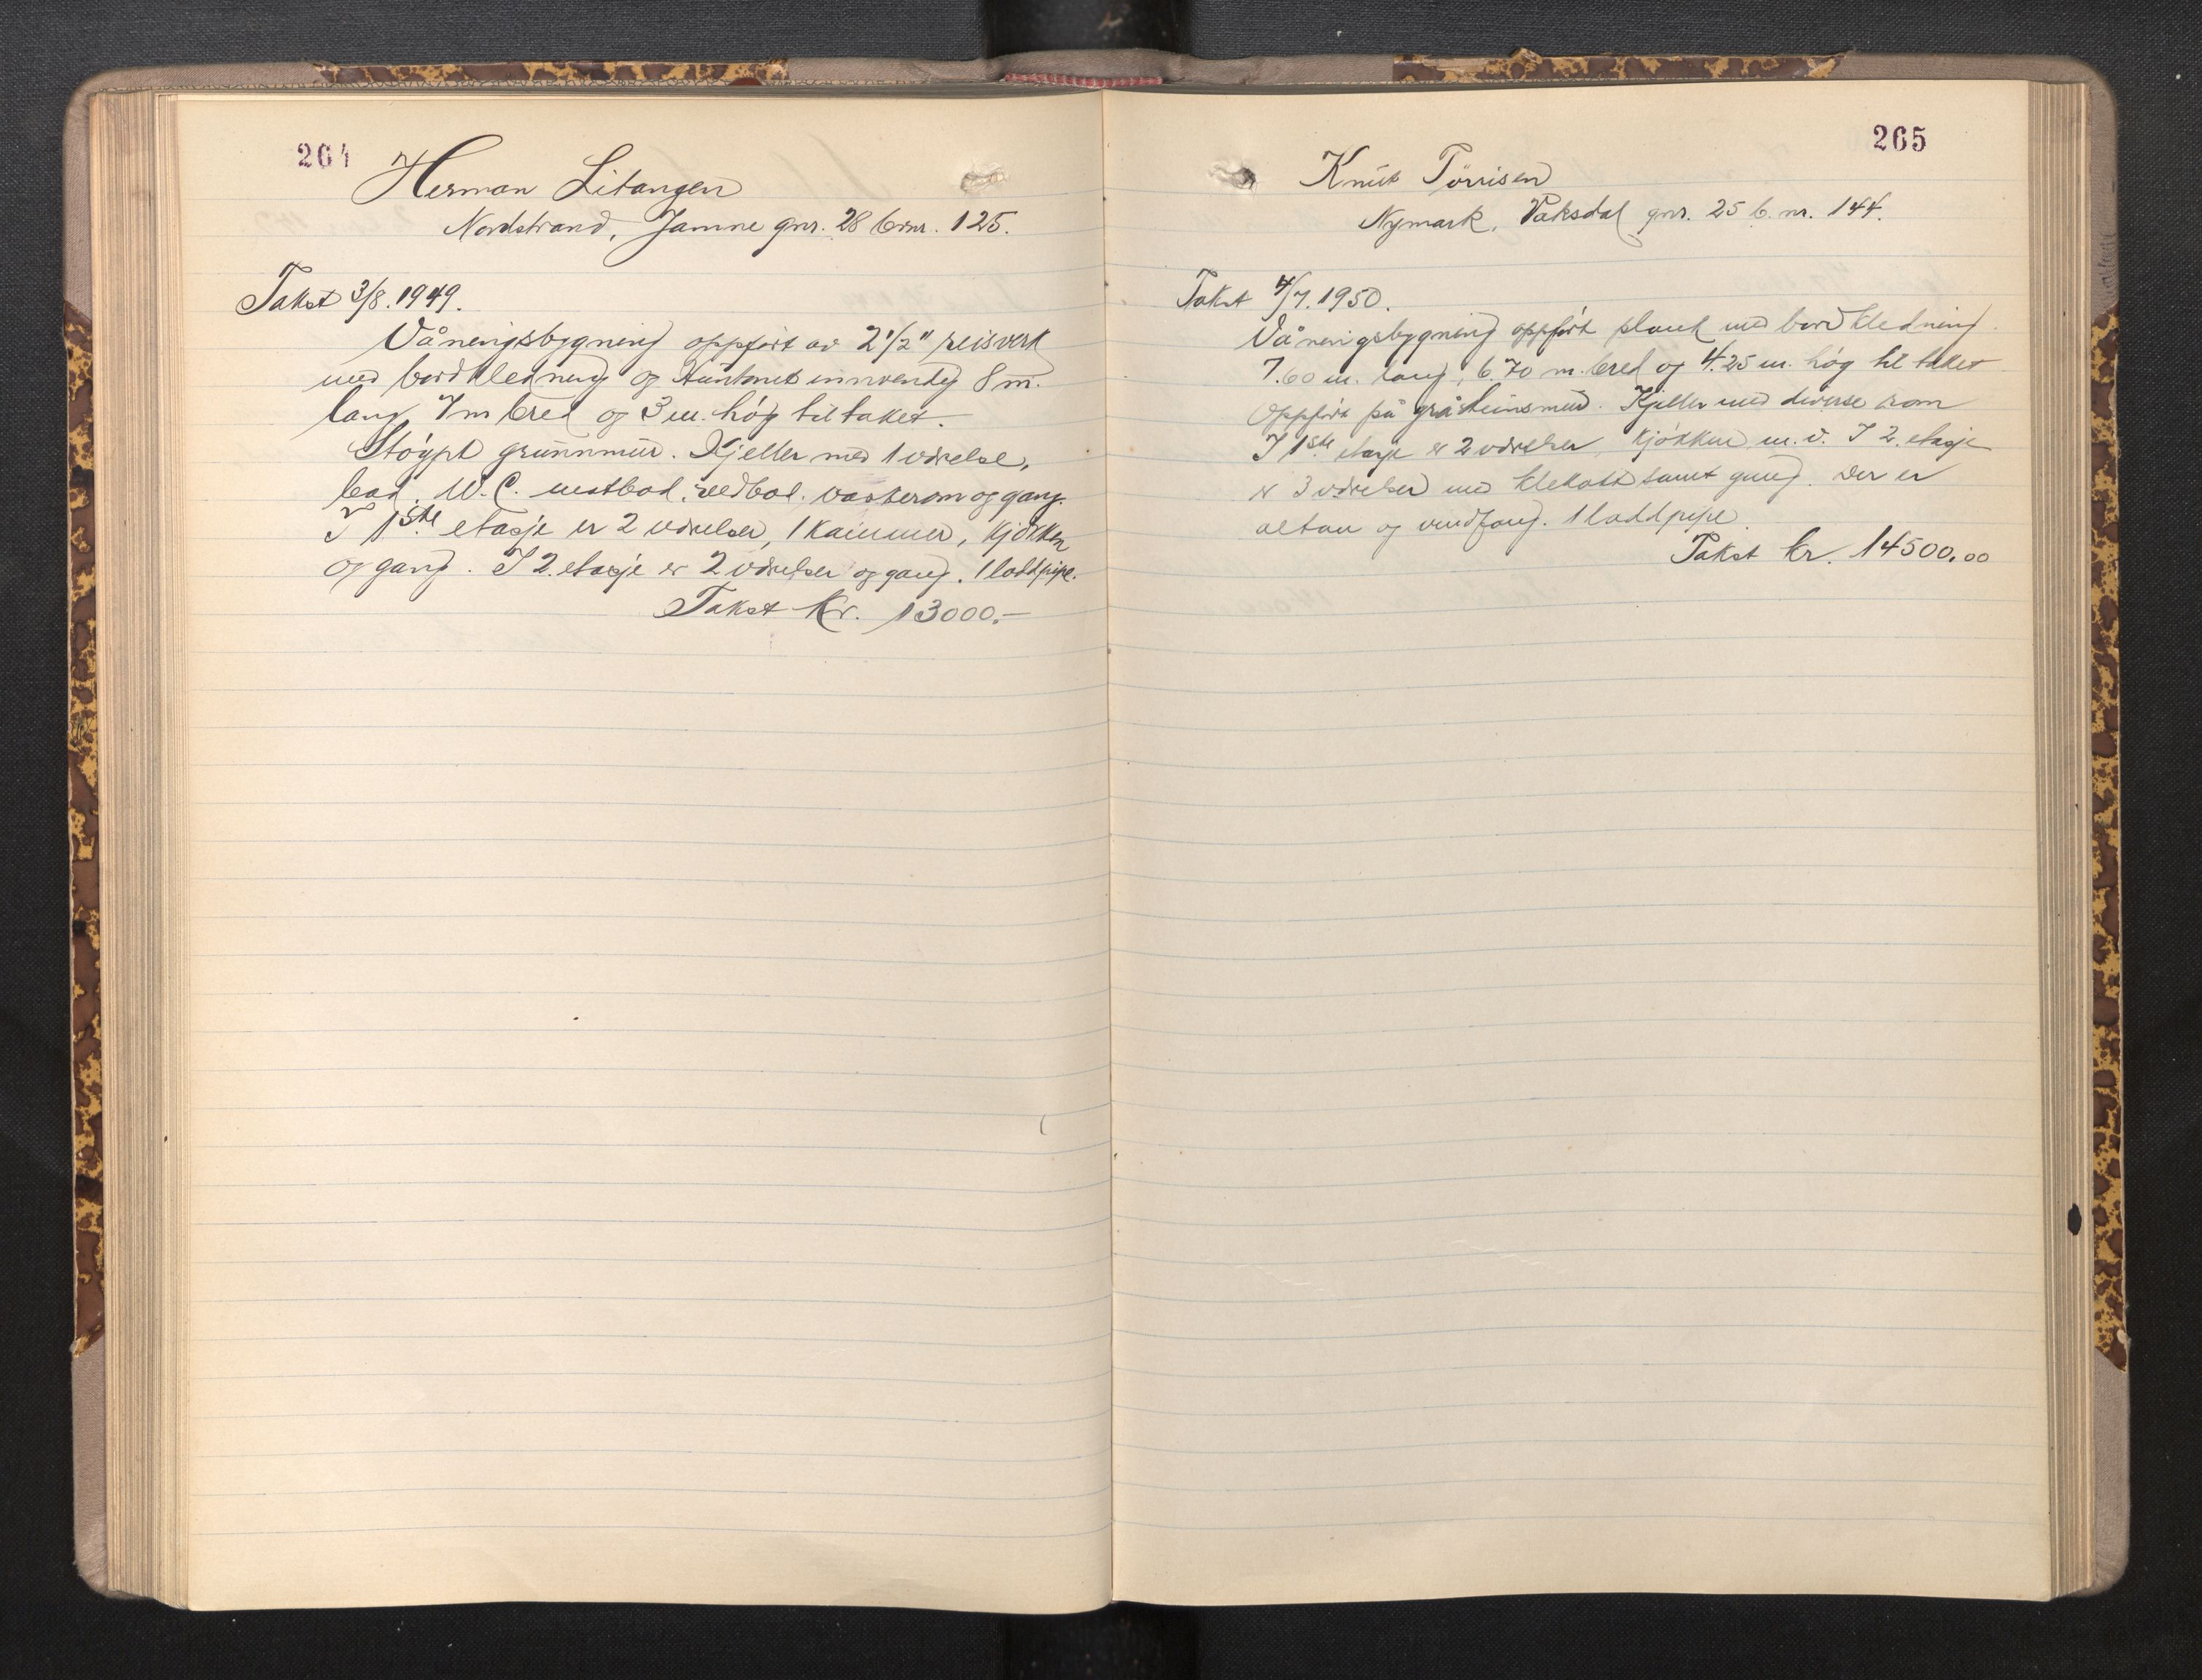 264
Herman Litangen
Nordstrand, Jamne gnr. 28 brnr. 125.
Takst 3/8. 1949.
Våningsbygning oppført av 2 1/2" reisverk
med bordkledning og Huntonit innvendig 8 m.
lang 7 m bred og 3 m. høg til taket.
Støypt grunnmur. Kjeller med 1 værelse,
bad. W.C. matbod, vedbod. vaskerom og gang.
I 1ste etasje er 2 værelser, 1 kammer, kjøkken
og gang. I 2. etasje er 2 værelser og gang. 1 loddpipe.
Takst kr. 13000.-
265
Knut Tørrisen
Nymark, Vaksdal gnr. 25 b. nr. 144.
Takst 4/7. 1950.
Våningsbygning oppført plank med bordkledning
7.60 m. lang, 6.70 m. bred og 4.25 m. høg til taket
Oppført på gråsteinsmur. Kjeller med diverse rom
I 1ste etasje er 2 værelser, kjøkken m.v. I 2. etasje
er 3 værelser med klekott samt gang. Der er
altan og vindfang. 1 loddpipe.
Takst kr. 14500.00